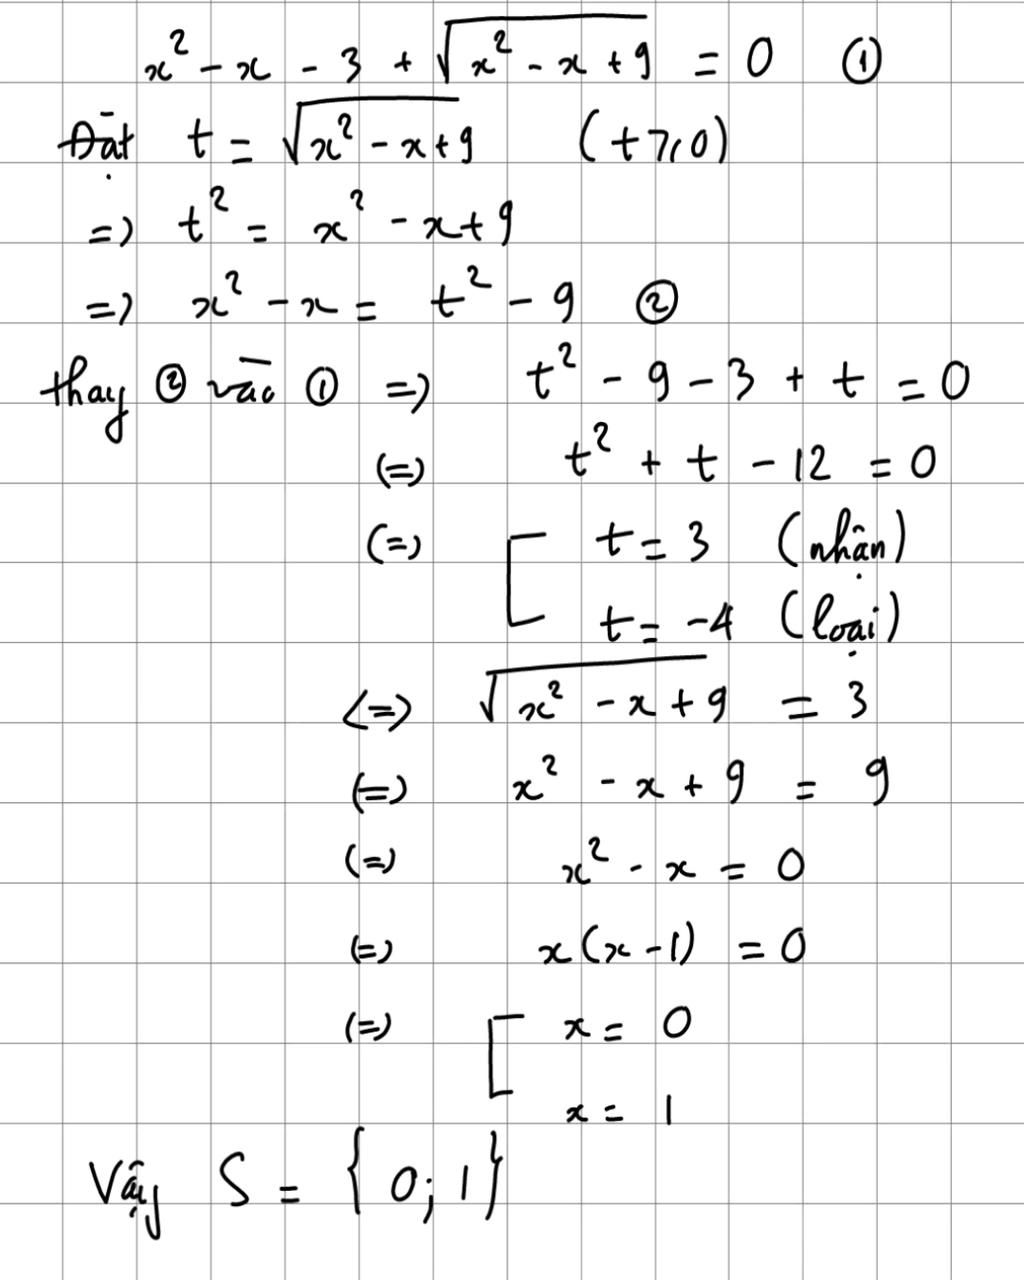 x² - x - 3 + √(x² - x + 9) = 0 ①
Đặt t = √(x² - x + 9) (t ≥ 0)
=> t² = x² - x + 9
=> x² - x = t² - 9 ②
thay ② vào ① => t² - 9 - 3 + t = 0
(=) t² + t - 12 = 0
(=) [ t = 3 (nhận)
t = -4 (loại)
<=> √(x² - x + 9) = 3
(=) x² - x + 9 = 9
(=) x² - x = 0
(=) x(x - 1) = 0
(=) [ x = 0
x = 1
Vậy S = {0; 1}